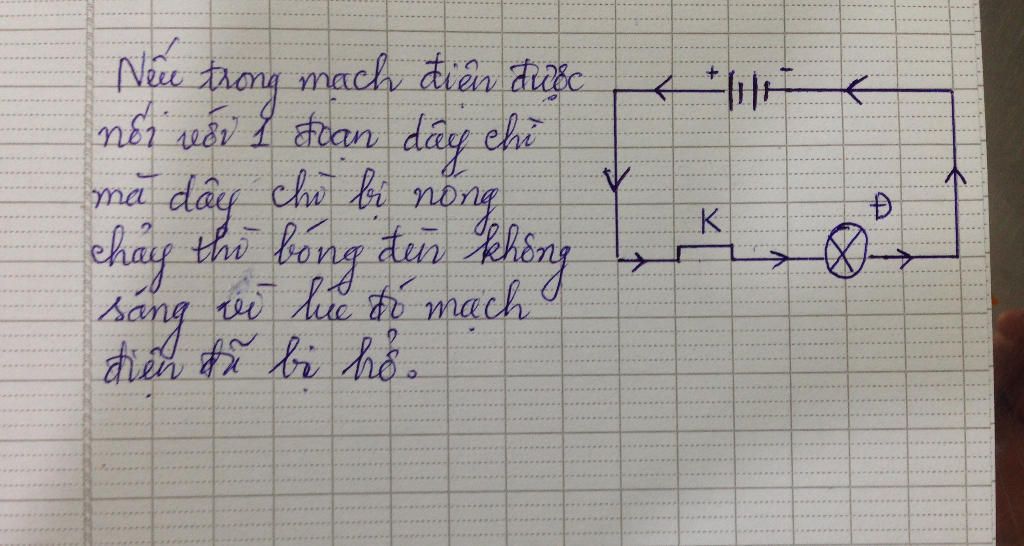 Nếu trong mạch điện được
nối với 1 đoạn dây chì
mà dây chì bị nóng
chảy thì bóng đèn không
sáng vì lúc đó mạch
điện đã bị hở.
+ -
K
Đ